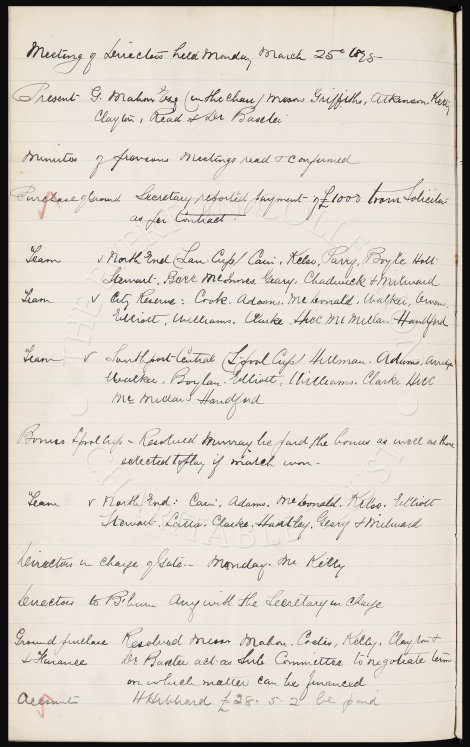 Meeting of Directors held Monday March 25th 1895
Present G. Mahon Esq (in the Chair) Messrs Griffiths, Atkinson, Kelly
Clayton, Read & Dr Baxter
Minutes of previous Meetings read & confirmed
Purchase of Ground Secretary reported payment of £1000 to our Solicitor
as per Contract.
Team v North End (Lan. Cup) Cain, Kelso, Parry, Boyle Holt
Stewart, Bell McInnes Geary, Chadwick & Milward
Team v City Reserve: Cook. Adams. McDonald, Walker, Arridge
Elliott, Williams. Clarke Hill McMillan Handford
Team v Southport Central (L'pool Cup) Hillman. Adams, Arridge
Walker, Boylan. Elliott, Williams. Clarke Hill
McMillan Handford
Bonus L'pool Cup - Resolved Murray be paid the bonus as well as those
selected to play if match won -
Team v North End: Cain, Adams, McDonald, Kelso. Elliott
Stewart. Latta. Clarke, Hartley, Geary & Milward
Directors in charge of Gate - Monday. Mr Kelly
Directors to B'burn Any with the Secretary in charge
Ground purchase Resolved Messrs Mahon. Coates, Kelly, Clayton &
& Finance Dr Baxter act as Sub Committee to negotiate terms
on which matter can be financed
Accounts H Hibbard £28. 5. 2 be paid